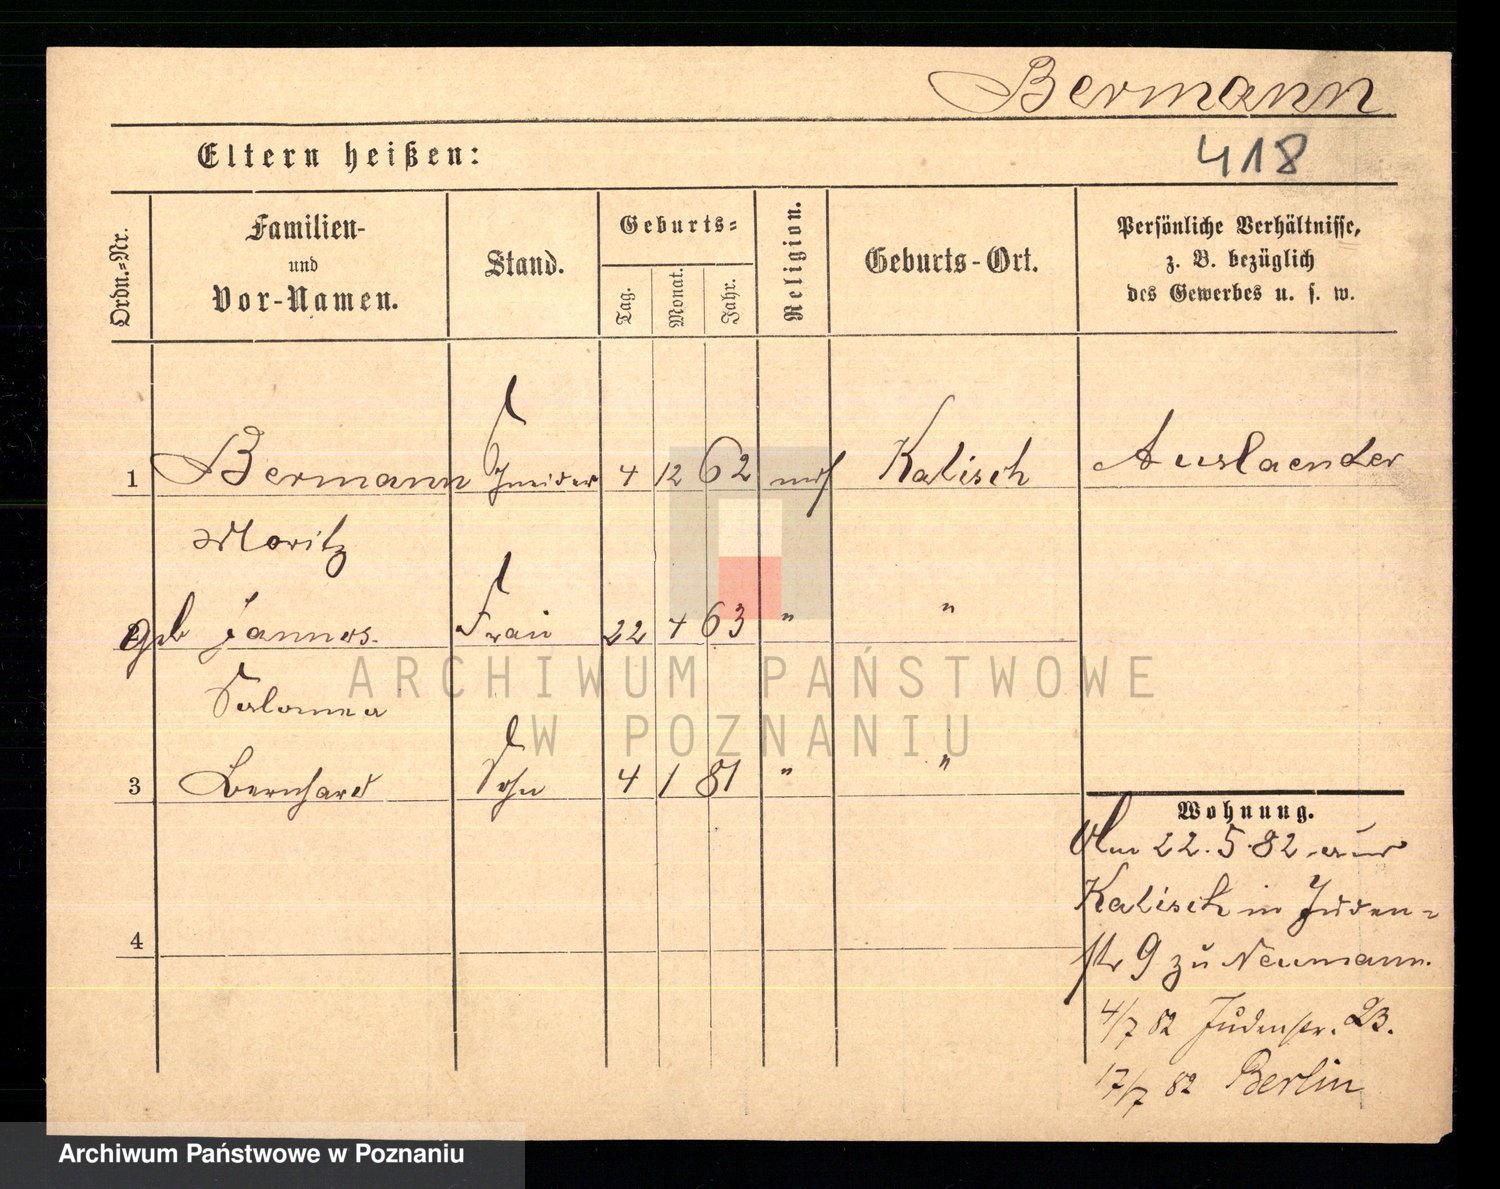 Bermann
Eltern heißen:
418
Ordn.-Nr.
Familien-
und
Vor-Namen.
Stand.
Geburts-
Tag.
Monat.
Jahr.
Religion.
Geburts-Ort.
Persönliche Verhältnisse,
z. B. bezüglich
des Gewerbes u. s. w.
1 Bermann Schneider 4 12 62 mos Kalisch Auslaender
Moritz
2 geb Frau 22 4 63 " "
Salomea
3 Bernhard Sohn 4 1 81 " "
4
Wohnung.
Am 22.5.82 aus
Kalisch in Juden-
str 9 zu Neumann.
4/7 82 Judenstr. 23.
17/7 82 Berlin
ARCHIWUM PAŃSTWOWE
W POZNANIU
Archiwum Państwowe w Poznaniu